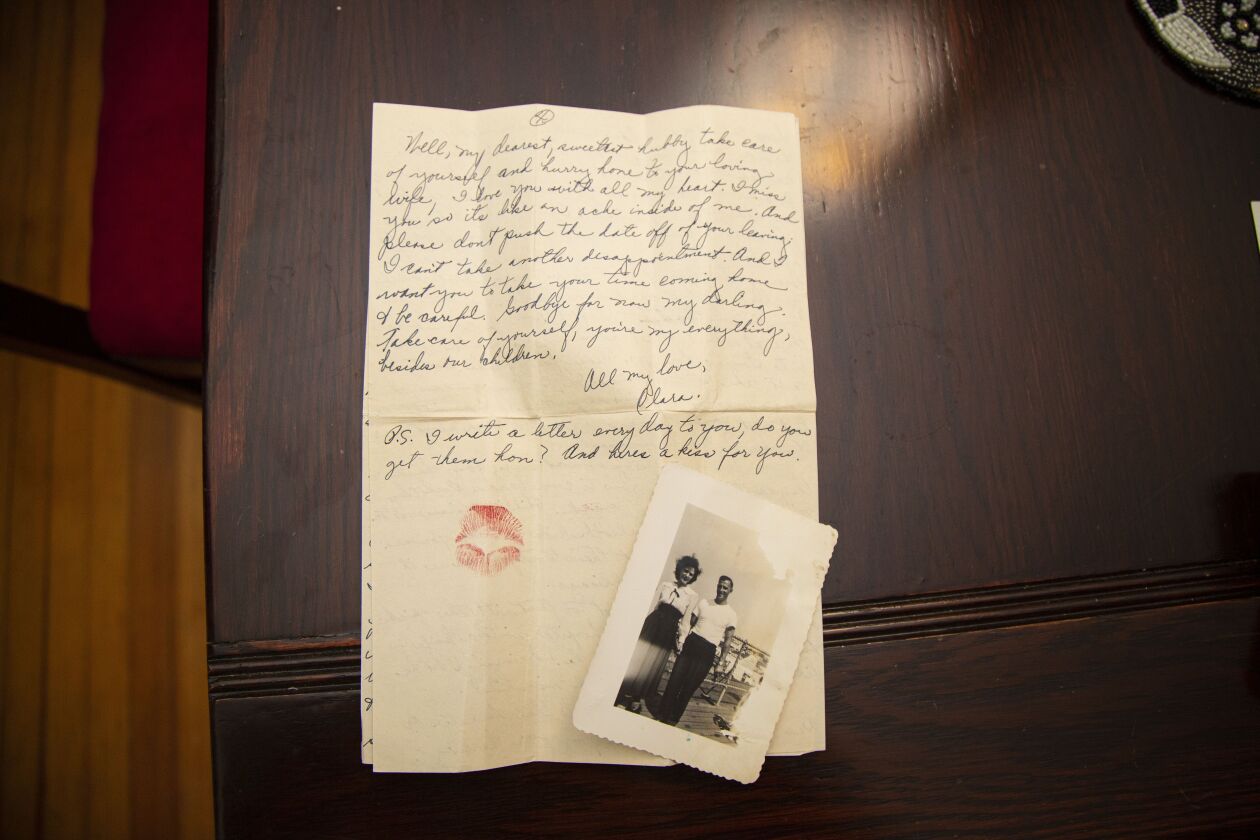 4
Well, my dearest, sweetest hubby take care
of yourself and hurry home to your loving
wife, I love you with all my heart. I miss
you so its like an ache inside of me. And
please dont push the date off of your leaving.
I can't take another disappointment. And I
want you to take your time coming home
& be careful. Goodbye for now my darling.
Take care of yourself, you're my everything,
besides our children.
All my love,
Clara.
P.S. I write a letter every day to you, do you
get them hon? And heres a kiss for you.